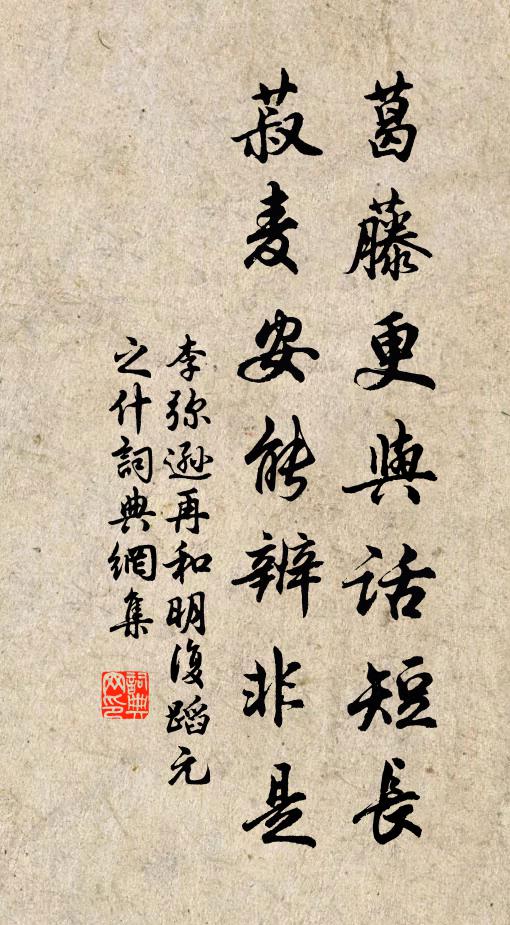 葛藤更與話短長
菽麦安能辨非是
李弥遜再和明復蹈元
之什詞典網集
詞典网印